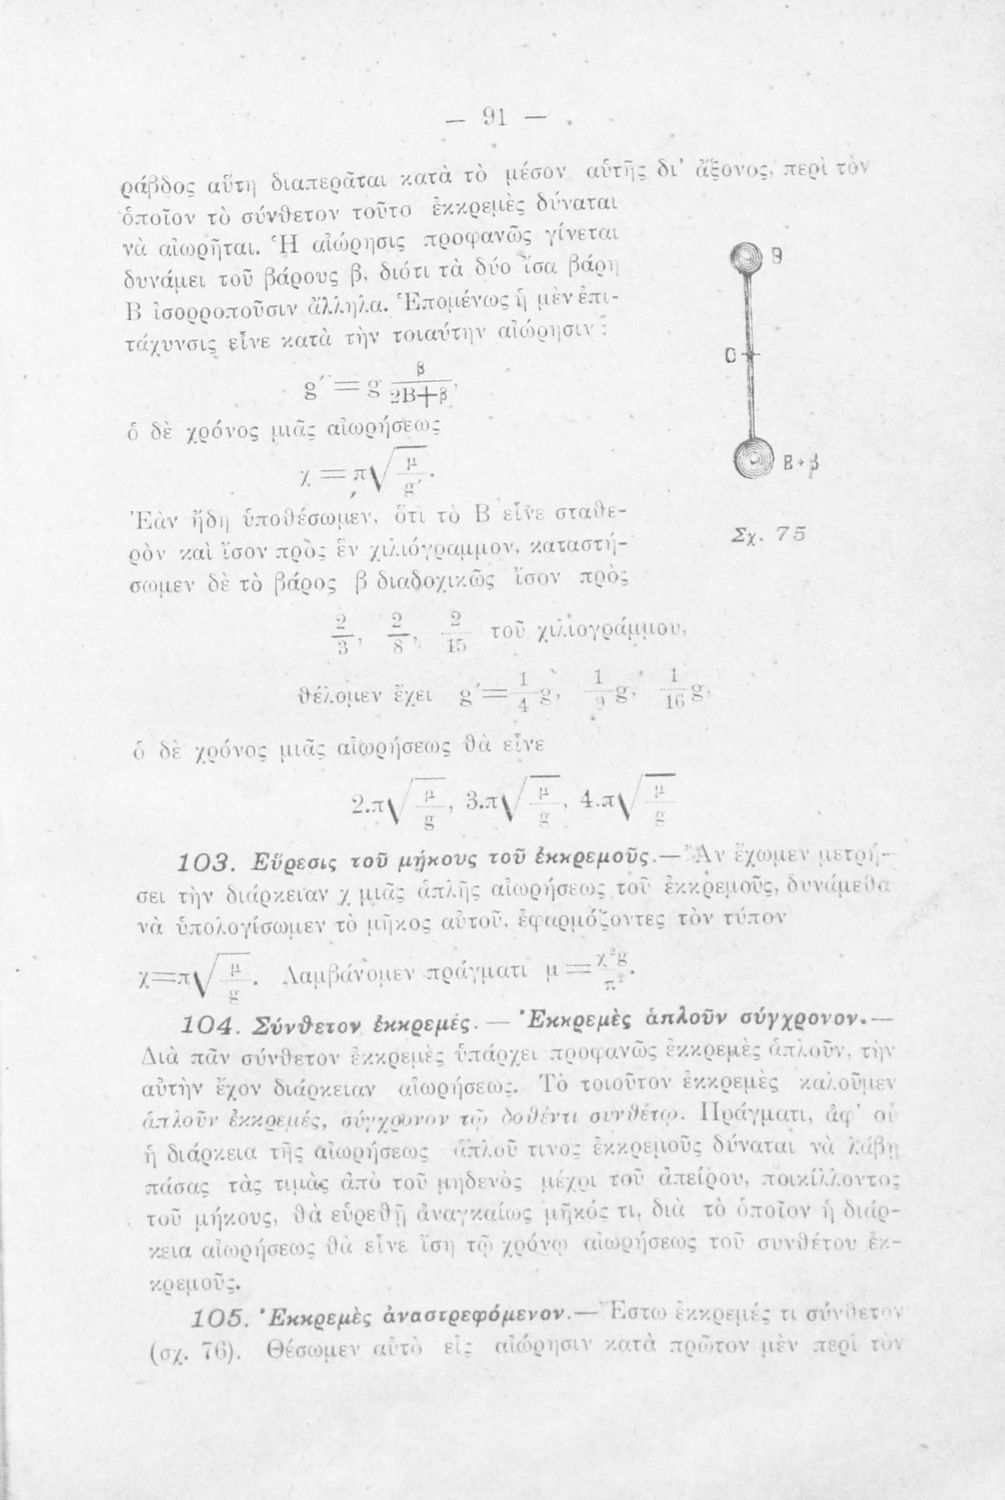 — 91 —
ράβδος αὕτη διαπερᾶται κατὰ τὸ μέσον αὐτῆς δι' ἄξονος, περὶ τὸν
ὁποῖον τὸ σύνθετον τοῦτο ἐκκρεμὲς δύναται
νὰ αἰωρῆται. Ἡ αἰώρησις προφανῶς γίνεται
δυνάμει τοῦ βάρους β, διότι τὰ δύο ἴσα βάρη
Β ἰσορροποῦσιν ἄλληλα. Ἑπομένως ἡ μὲν ἐπι-
τάχυνσις εἶνε κατὰ τὴν τοιαύτην αἰώρησιν :
g′ = g β/(2Β+β),
ὁ δὲ χρόνος μιᾶς αἰωρήσεως
χ = π√(μ/g′).
Ἐὰν ἤδη ὑποθέσωμεν, ὅτι τὸ Β εἶνε σταθε-
ρὸν καὶ ἴσον πρὸς ἓν χιλιόγραμμον, καταστή-
σωμεν δὲ τὸ βάρος β διαδοχικῶς ἴσον πρὸς
2/3, 2/8, 2/15 τοῦ χιλιογράμμου,
θέλομεν ἔχει g′ = 1/4 g, 1/9 g, 1/16 g,
ὁ δὲ χρόνος μιᾶς αἰωρήσεως θὰ εἶνε
2.π√(μ/g), 3.π√(μ/g), 4.π√(μ/g)
Β
C
Β+β
Σχ. 75
103. Εὕρεσις τοῦ μήκους τοῦ ἐκκρεμοῦς.—Ἂν ἔχωμεν μετρή-
σει τὴν διάρκειαν χ μιᾶς ἁπλῆς αἰωρήσεως τοῦ ἐκκρεμοῦς, δυνάμεθα
νὰ ὑπολογίσωμεν τὸ μῆκος αὐτοῦ, ἐφαρμόζοντες τὸν τύπον
χ=π√(μ/g). Λαμβάνομεν πράγματι μ = χ²g/π².
104. Σύνθετον ἐκκρεμές. — Ἐκκρεμὲς ἁπλοῦν σύγχρονον.—
Διὰ πᾶν σύνθετον ἐκκρεμὲς ὑπάρχει προφανῶς ἐκκρεμὲς ἁπλοῦν, τὴν
αὐτὴν ἔχον διάρκειαν αἰωρήσεως. Τὸ τοιοῦτον ἐκκρεμὲς καλοῦμεν
ἁπλοῦν ἐκκρεμές, σύγχρονον τῷ δοθέντι συνθέτῳ. Πράγματι, ἀφ' οὗ
ἡ διάρκεια τῆς αἰωρήσεως ἁπλοῦ τινος ἐκκρεμοῦς δύναται νὰ λάβῃ
πάσας τὰς τιμὰς ἀπὸ τοῦ μηδενὸς μέχρι τοῦ ἀπείρου, ποικίλλοντος
τοῦ μήκους, θὰ εὑρεθῇ ἀναγκαίως μῆκός τι, διὰ τὸ ὁποῖον ἡ διάρ-
κεια αἰωρήσεως θὰ εἶνε ἴση τῷ χρόνῳ αἰωρήσεως τοῦ συνθέτου ἐκ-
κρεμοῦς.
105. Ἐκκρεμὲς ἀναστρεφόμενον.—Ἔστω ἐκκρεμές τι σύνθετον
(σχ. 76). Θέσωμεν αὐτὸ εἰς αἰώρησιν κατὰ πρῶτον μὲν περὶ τὸν